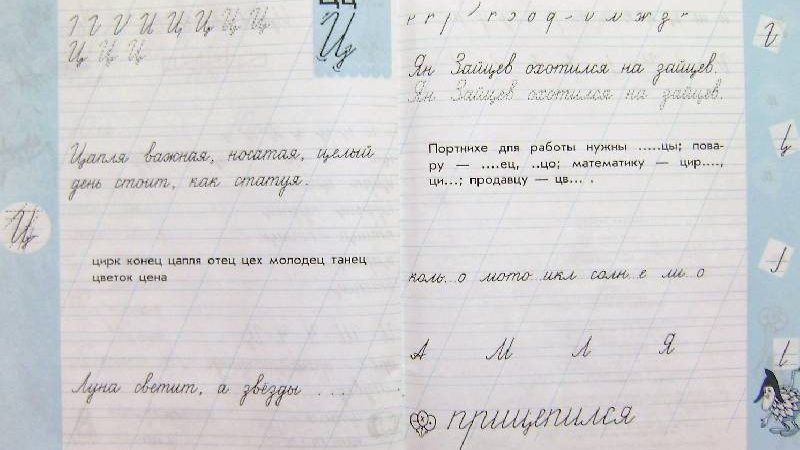 Ц
Ц Ц Ц Ц
Ц Ц Ц
Цапля важная, носатая, целый
день стоит, как статуя.
Ц
цирк конец цапля отец цех молодец танец
цветок цена
Луна светит, а звёзды ....
Ян Зайцев охотился на зайцев.
Ян Зайцев охотился на зайцев.
Портнихе для работы нужны .....цы; пова-
ру — ....ец, ..цо; математику — цир....,
ци...; продавцу — цв... .
коль..о мото..икл солн..е ли..о
А М Л Я
прицепился